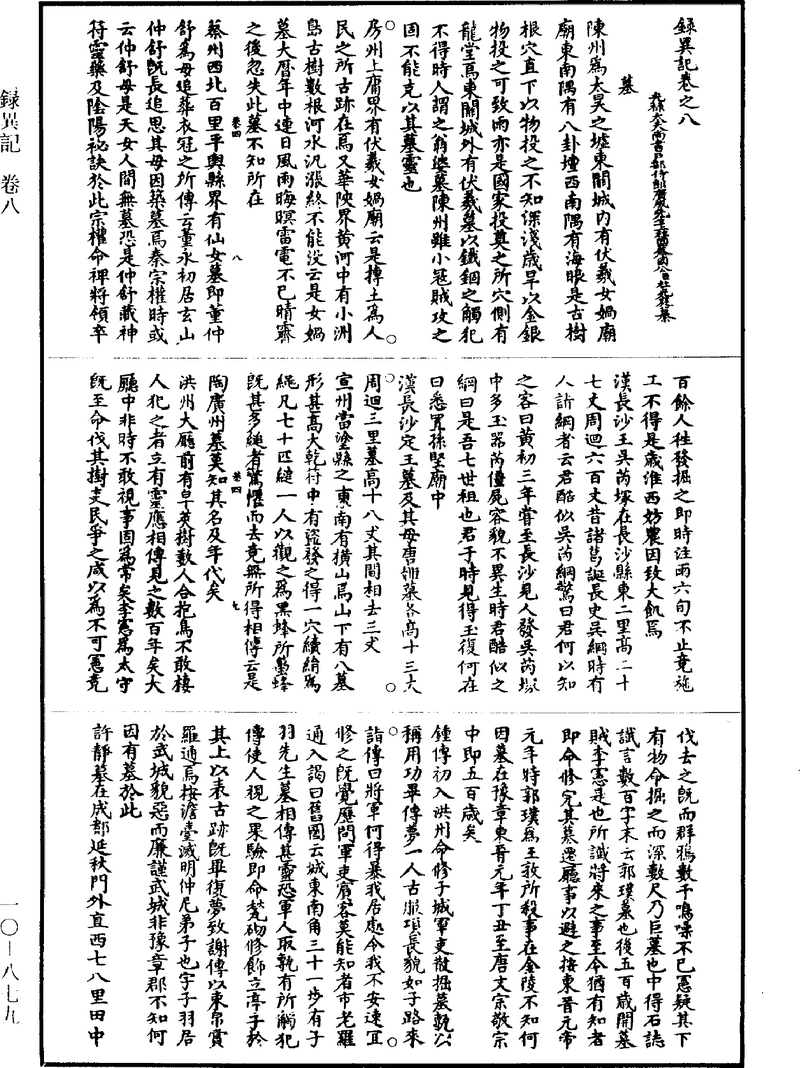 錄異記卷之八
墓
陳州為太昊之墟東關城內有伏羲女媧廟
廟東南隅有八卦壇西南隅有海眼是古樹
根穴直下以物投之不知深淺歲旱以金銀
物投之可致雨亦是國家投奠之所穴側有
龍堂焉東關城外有伏羲墓以鐵錮之觸犯
不得時人謂之翁婆墓陳州雖小寇賊攻之
固不能克以其墓靈也
房州上庸界有伏羲女媧廟云是摶土為人
民之所古跡在焉又華陜界黃河中有小洲
島古樹數根河水汎漲終不能沒云是女媧
墓大曆年中連日風雨晦暝雷電不已晴霽
之後忽失此墓不知所在
卷四 八
蔡州西北百里平輿縣界有仙女墓即董仲
舒為母追葬衣冠之所傳云董永初居玄山
仲舒既長追思其母因築墓焉秦宗權時或
云仲舒母是天女人間無墓恐是仲舒藏神
符靈藥及陰陽祕訣於此宗權命裨將領卒
百餘人往發掘之即時注雨六旬不止竟施
工不得是歲淮西妨農因致大飢焉
漢長沙王吳芮塚在長沙縣東二里高二十
七丈周迴六百丈昔諸葛誕長史吳綱時有
人訢綱者云君酷似吳芮綱驚曰君何以知
之客曰黃初三年嘗至長沙見人發吳芮塚
中多玉器芮僵屍容貌不異生時君酷似之
綱曰是吾七世祖也君于時見得玉復何在
曰悉置孫堅廟中
漢長沙定王墓及其母唐姬葬各高十三丈
周迴三里墓高十八丈其間相去三丈
宣州當塗縣之東南有橫山焉山下有八墓
形甚高大乾符中有盜發之得一穴續絹為
繩凡七十匹縋一人以觀之為黑蜂所螫蜂
既甚多縋者驚懼而去竟無所得相傳云是
陶廣州墓莫知其名及年代矣
卷四 九
洪州大廳前有皁莢樹數人合抱鳥不敢棲
人犯之者立有靈應相傳見之數百年矣大
廳中非時不敢視事因為常矣李憲為太守
既至命伐其樹吏民爭之咸以為不可憲竟
伐去之既而群鴉數千鳴噪不已憲疑其下
有物命掘之而深數尺乃巨墓也中得石誌
讖言數百字末云郭璞墓也後五百歲開墓
賊李憲是也所讖將來之事至今猶有知者
即命修完其墓遷廳事以避之按東晉元帝
元年時郭璞為王敦所殺事在金陵不知何
因墓在豫章東晉元年丁丑至唐文宗敬宗
中即五百歲矣
鍾傳初入洪州命修子城軍吏散掘墓甎以
稱用功畢傳夢一人古服項長貌如子路來
詣傳曰將軍何得暴我居處令我不安速宜
修之既覺歷問軍吏賓客莫能知者市老羅
通入謁曰舊圖云城東南角三十一步有子
羽先生墓相傳甚靈恐軍人取甎有所觸犯
傳使人視之果驗即命甃砌修飾立亭子於
其上以表古跡既畢復夢致謝傳以東帛賞
羅通焉按澹臺滅明仲尼弟子也字子羽居
於武城貌惡而廉謹武城非豫章郡不知何
因有墓於此
許靜墓在成都延秋門外直西七八里田中
錄異記 卷八
一〇—八七九